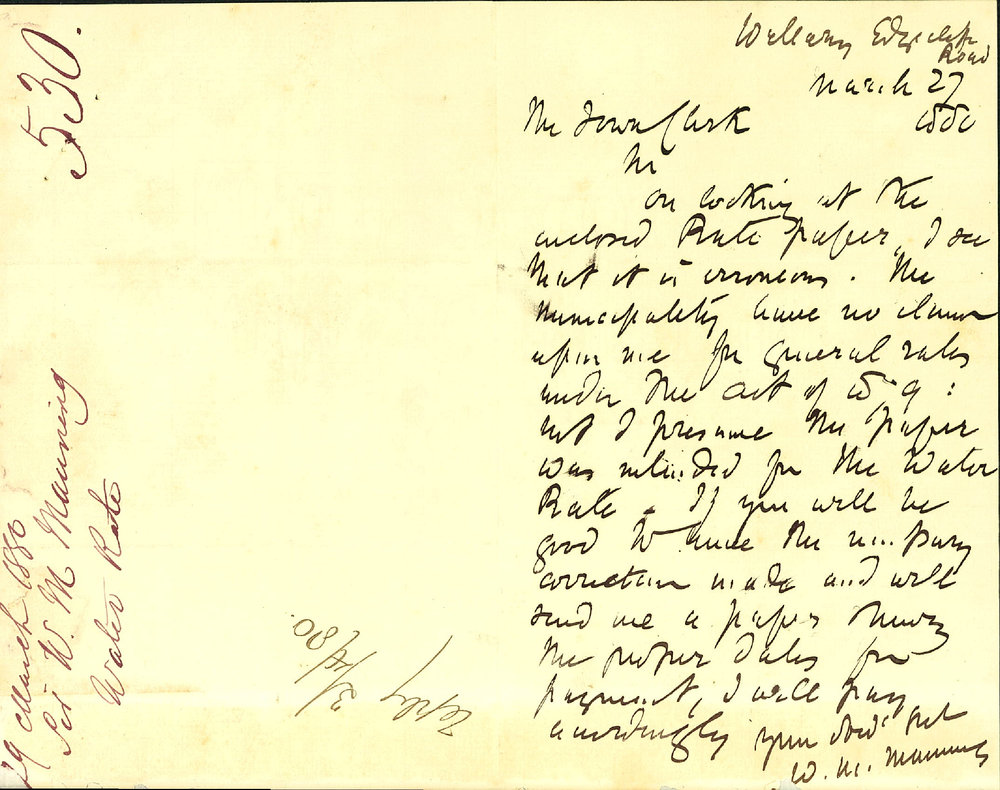 530.
29 March 1880
Sir W. M. Manning
Water Rate
reply
3/4/80.
Wallaroy Edgecliffe
Road
March 27
1880
The Town Clerk
Sir
On looking at the
enclosed Rate paper, I see
that it is erroneous. The
Municipality have no claim
upon me for general rates
under the Act of :
but I presume the paper
was intended for the Water
Rate - If you will be
good to have the necessary
correction made and will
send me a paper shewing
the proper dates for
payment, I will pay
accordingly your obedt svt
W. M. Manning